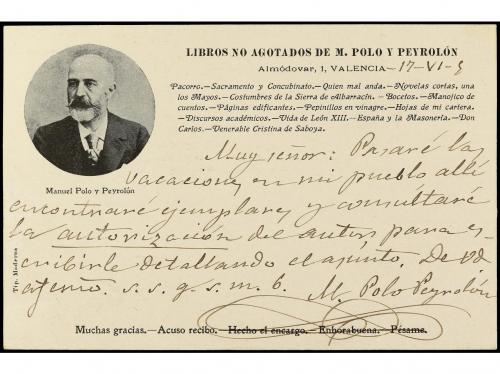 LIBROS NO AGOTADOS DE M. POLO Y PEYROLÓN
Almódovar, 1, VALENCIA—17-VI-5
Pacorro.—Sacramento y Concubinato.—Quien mal anda.—Novelas cortas, una
los Mayos.—Costumbres de la Sierra de Albarracín.—Bocetos.—Manojico de
cuentos.—Páginas edificantes.—Pepinillos en vinagre.—Hojas de mi cartera.
—Discursos académicos.—Vida de León XIII.—España y la Masonería.—Don
Carlos.—Venerable Cristina de Saboya.
Manuel Polo y Peyrolón
Muy señor: Pasaré las
vacaciones en mi pueblo allí
encontraré ejemplares y consultaré
la autorización del autor para es
cribirle detallando el asunto. De Vd
atento. s. s. q. s. m. b.
M. Polo Peyrolón
Tip. Moderna
Muchas gracias.—Acuso recibo.—Hecho el encargo.—Enhorabuena.—Pésame.